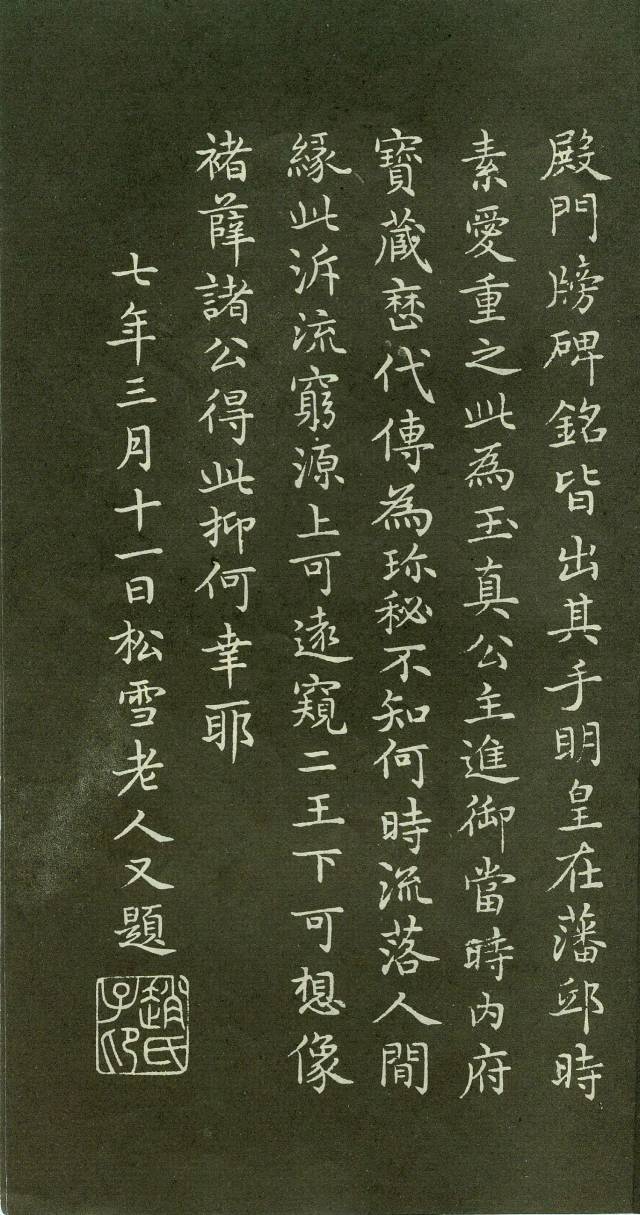 殿門牓碑銘皆出其手明皇在藩邸時
素愛重之此為玉真公主進御當時內府
寶藏歷代傳為珎秘不知何時流落人間
緣此泝流窮源上可遠窺二王下可想像
褚薛諸公得此抑何幸耶
七年三月十一日松雪老人又題
趙氏子印